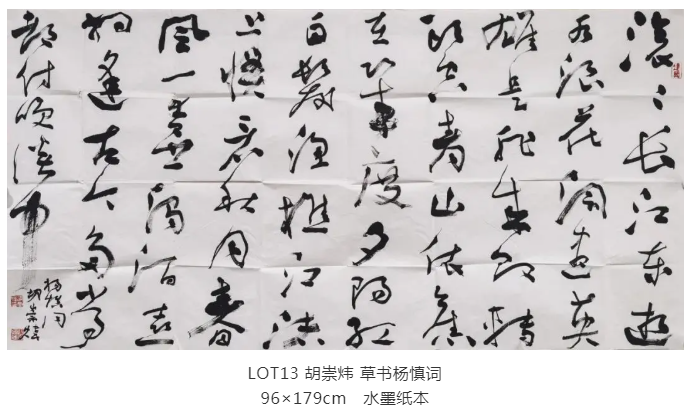 滚滚长江东逝
水浪花淘尽英
雄是非成败转
头空青山依旧
在几度夕阳红
白髮渔樵江渚
上惯看秋月春
风一壶浊酒喜
相逢古今多少事
都付笑谈中
杨慎词
胡崇炜
LOT13 胡崇炜 草书杨慎词
96×179cm 水墨纸本